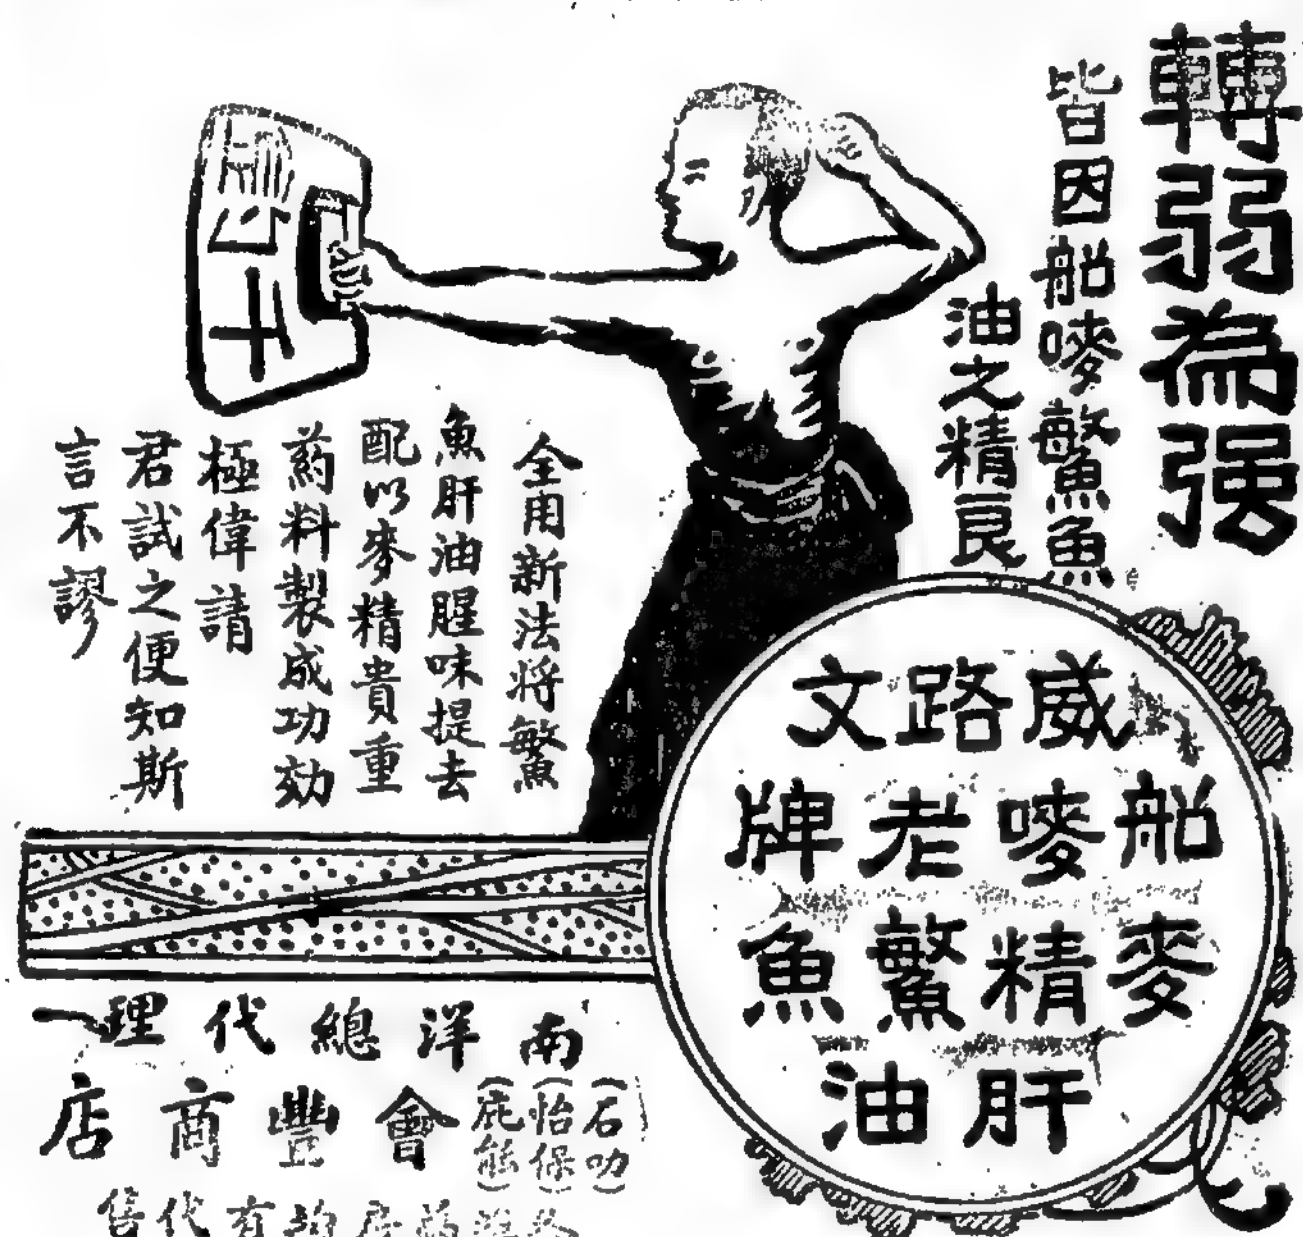 轉弱為强
皆因船嘜鰵魚
油之精良
四十
全用新法將鰵
魚肝油腥味提去
配以麥精貴重
葯料製成功効
極偉請
君試之便知斯
言不謬
威路文
船嘜老牌
麥精鰵魚
肝油
南洋總代理
(石叻)
(怡保)
(庇能)
會豐商店
有代售